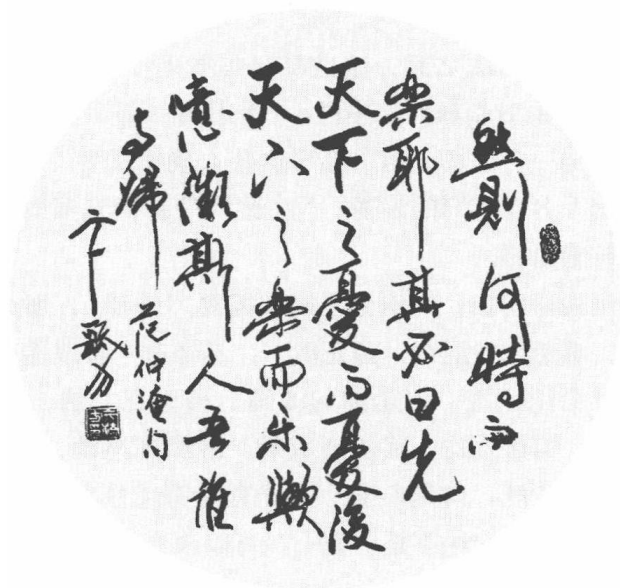 然則何時而
樂耶其必曰先
天下之憂而憂後
天下之樂而乐歟
噫微斯人吾誰
與歸
范仲淹句